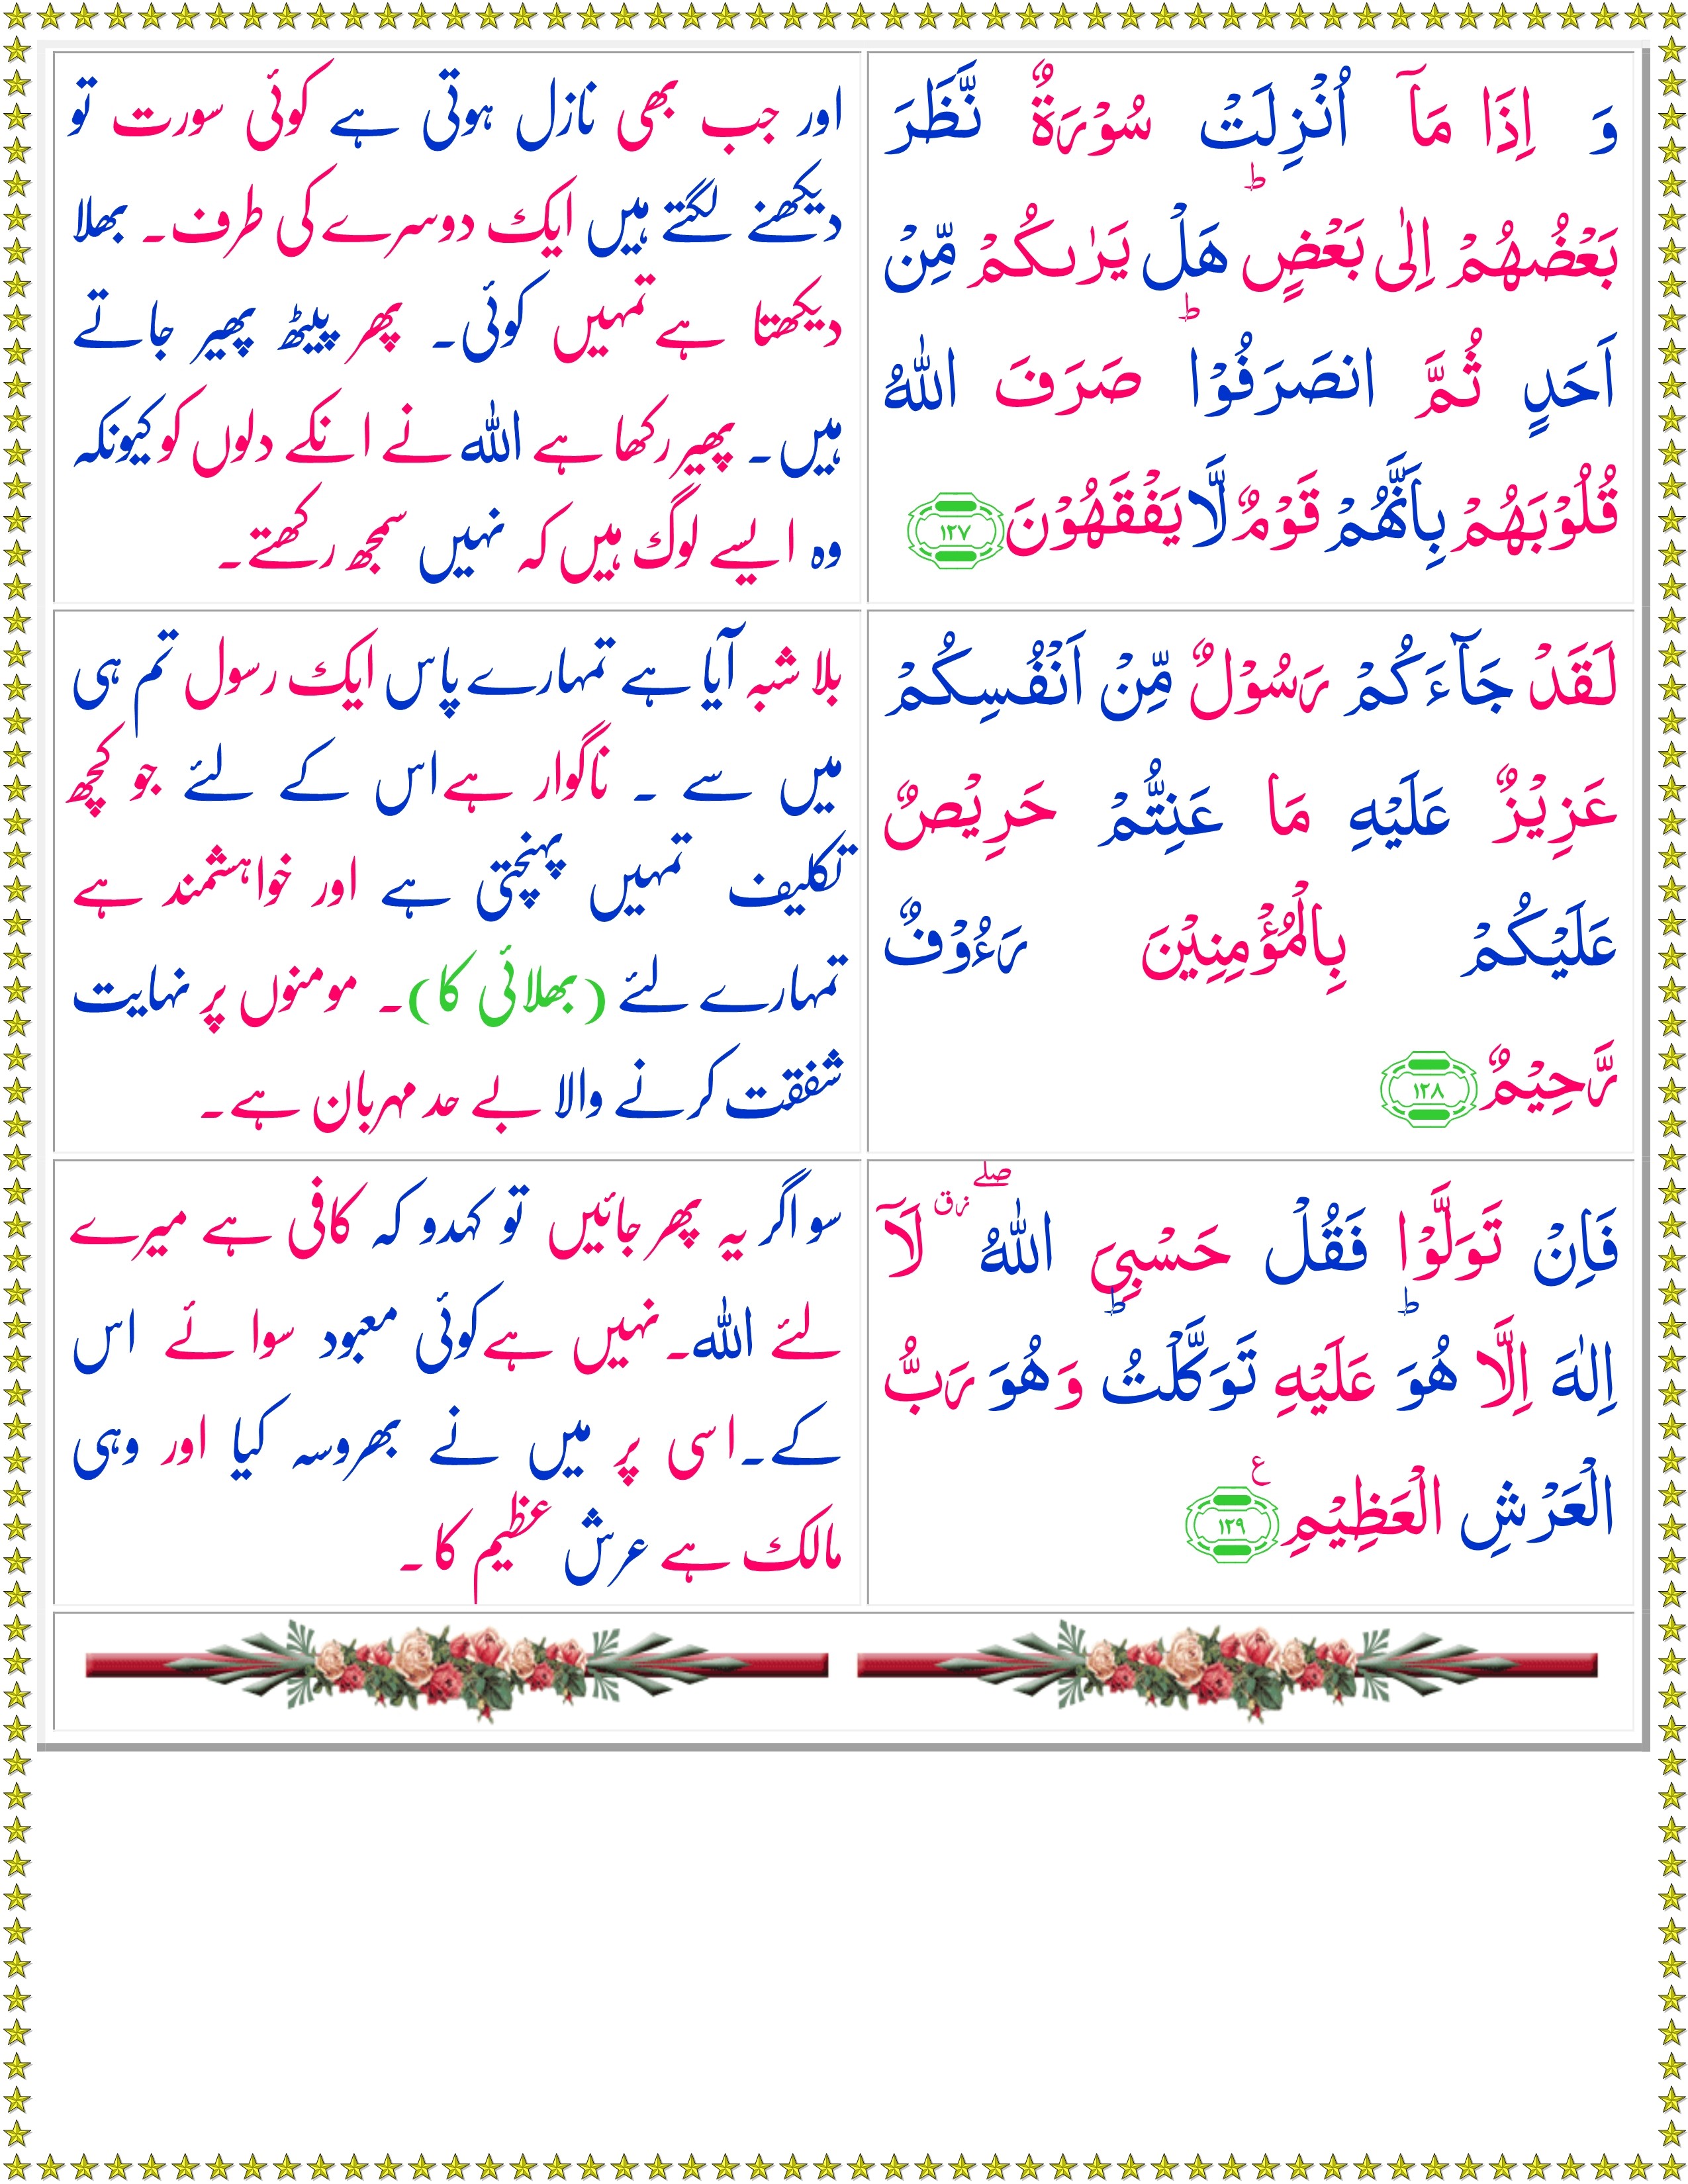 وَ اِذَا مَاۤ اُنْزِلَتْ سُوْرَةٌ نَّظَرَ
بَعْضُهُمْ اِلٰى بَعْضٍؕ هَلْ يَرٰىكُمْ مِّنْ
اَحَدٍ ثُمَّ انصَرَفُوْاؕ صَرَفَ اللّٰهُ
قُلُوْبَهُمْ بِاَنَّهُمْ قَوْمٌ لَّا يَفْقَهُوْنَ ۱۲۷
اور جب بھی نازل ہوتی ہے کوئی سورت تو
دیکھنے لگتے ہیں ایک دوسرے کی طرف۔ بھلا
دیکھتا ہے تمہیں کوئی۔ پھر پیٹھ پھیر جاتے
ہیں۔ پھیر رکھا ہے اللہ نے انکے دلوں کو کیونکہ
وہ ایسے لوگ ہیں کہ نہیں سمجھ رکھتے۔
لَقَدْ جَآءَكُمْ رَسُوْلٌ مِّنْ اَنْفُسِكُمْ
عَزِيْزٌ عَلَيْهِ مَا عَنِتُّمْ حَرِيْصٌ
عَلَيْكُمْ بِالْمُؤْمِنِيْنَ رَءُوْفٌ
رَّحِيْمٌ ۱۲۸
بلا شبہ آیا ہے تمہارے پاس ایک رسول تم ہی
میں سے ۔ ناگوار ہے اس کے لئے جو کچھ
تکلیف تمہیں پہنچتی ہے اور خواہشمند ہے
تمہارے لئے (بھلائی کا)۔ مومنوں پر نہایت
شفقت کرنے والا بے حد مہربان ہے۔
فَاِنْ تَوَلَّوْا فَقُلْ حَسْبِىَ اللّٰهُ ۖ زق لَاۤ
اِلٰهَ اِلَّا هُوَؕ عَلَيْهِ تَوَكَّلْتُؕ وَهُوَ رَبُّ
الْعَرْشِ الْعَظِيْمِ ع ۱۲۹
سو اگر یہ پھر جائیں تو کہدو کہ کافی ہے میرے
لئے اللہ۔ نہیں ہے کوئی معبود سوائے اس
کے۔ اسی پر میں نے بھروسہ کیا اور وہی
مالک ہے عرش عظیم کا۔